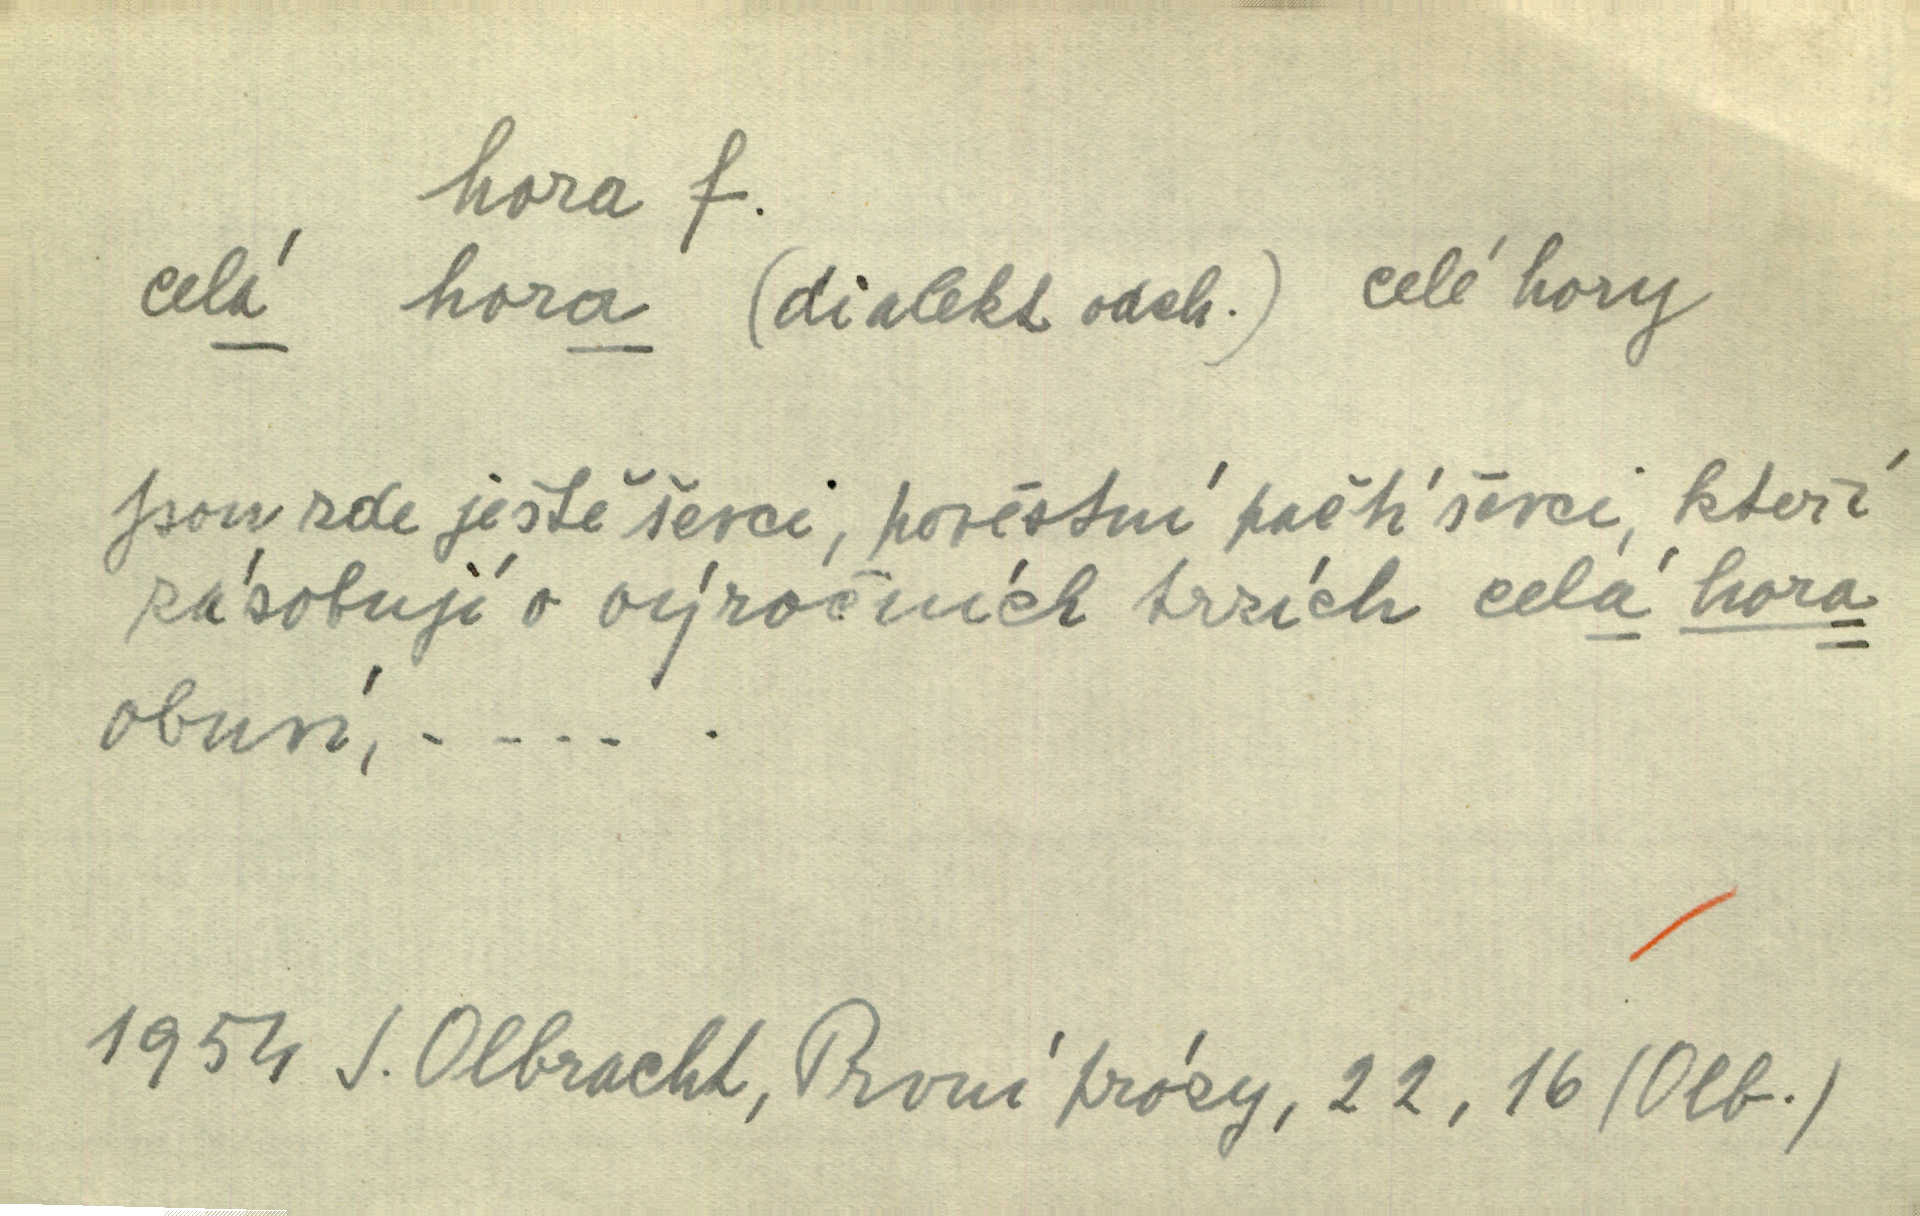 hora f.
celá hora (dialekt odch.) celé hory
jsou zde ještě ševci, pověstní ševci, kteří
zásobují o výročních trzích celá hora
obuví, - - - - .
1954 I. Olbracht, První prózy, 22, 16 (Olb.)